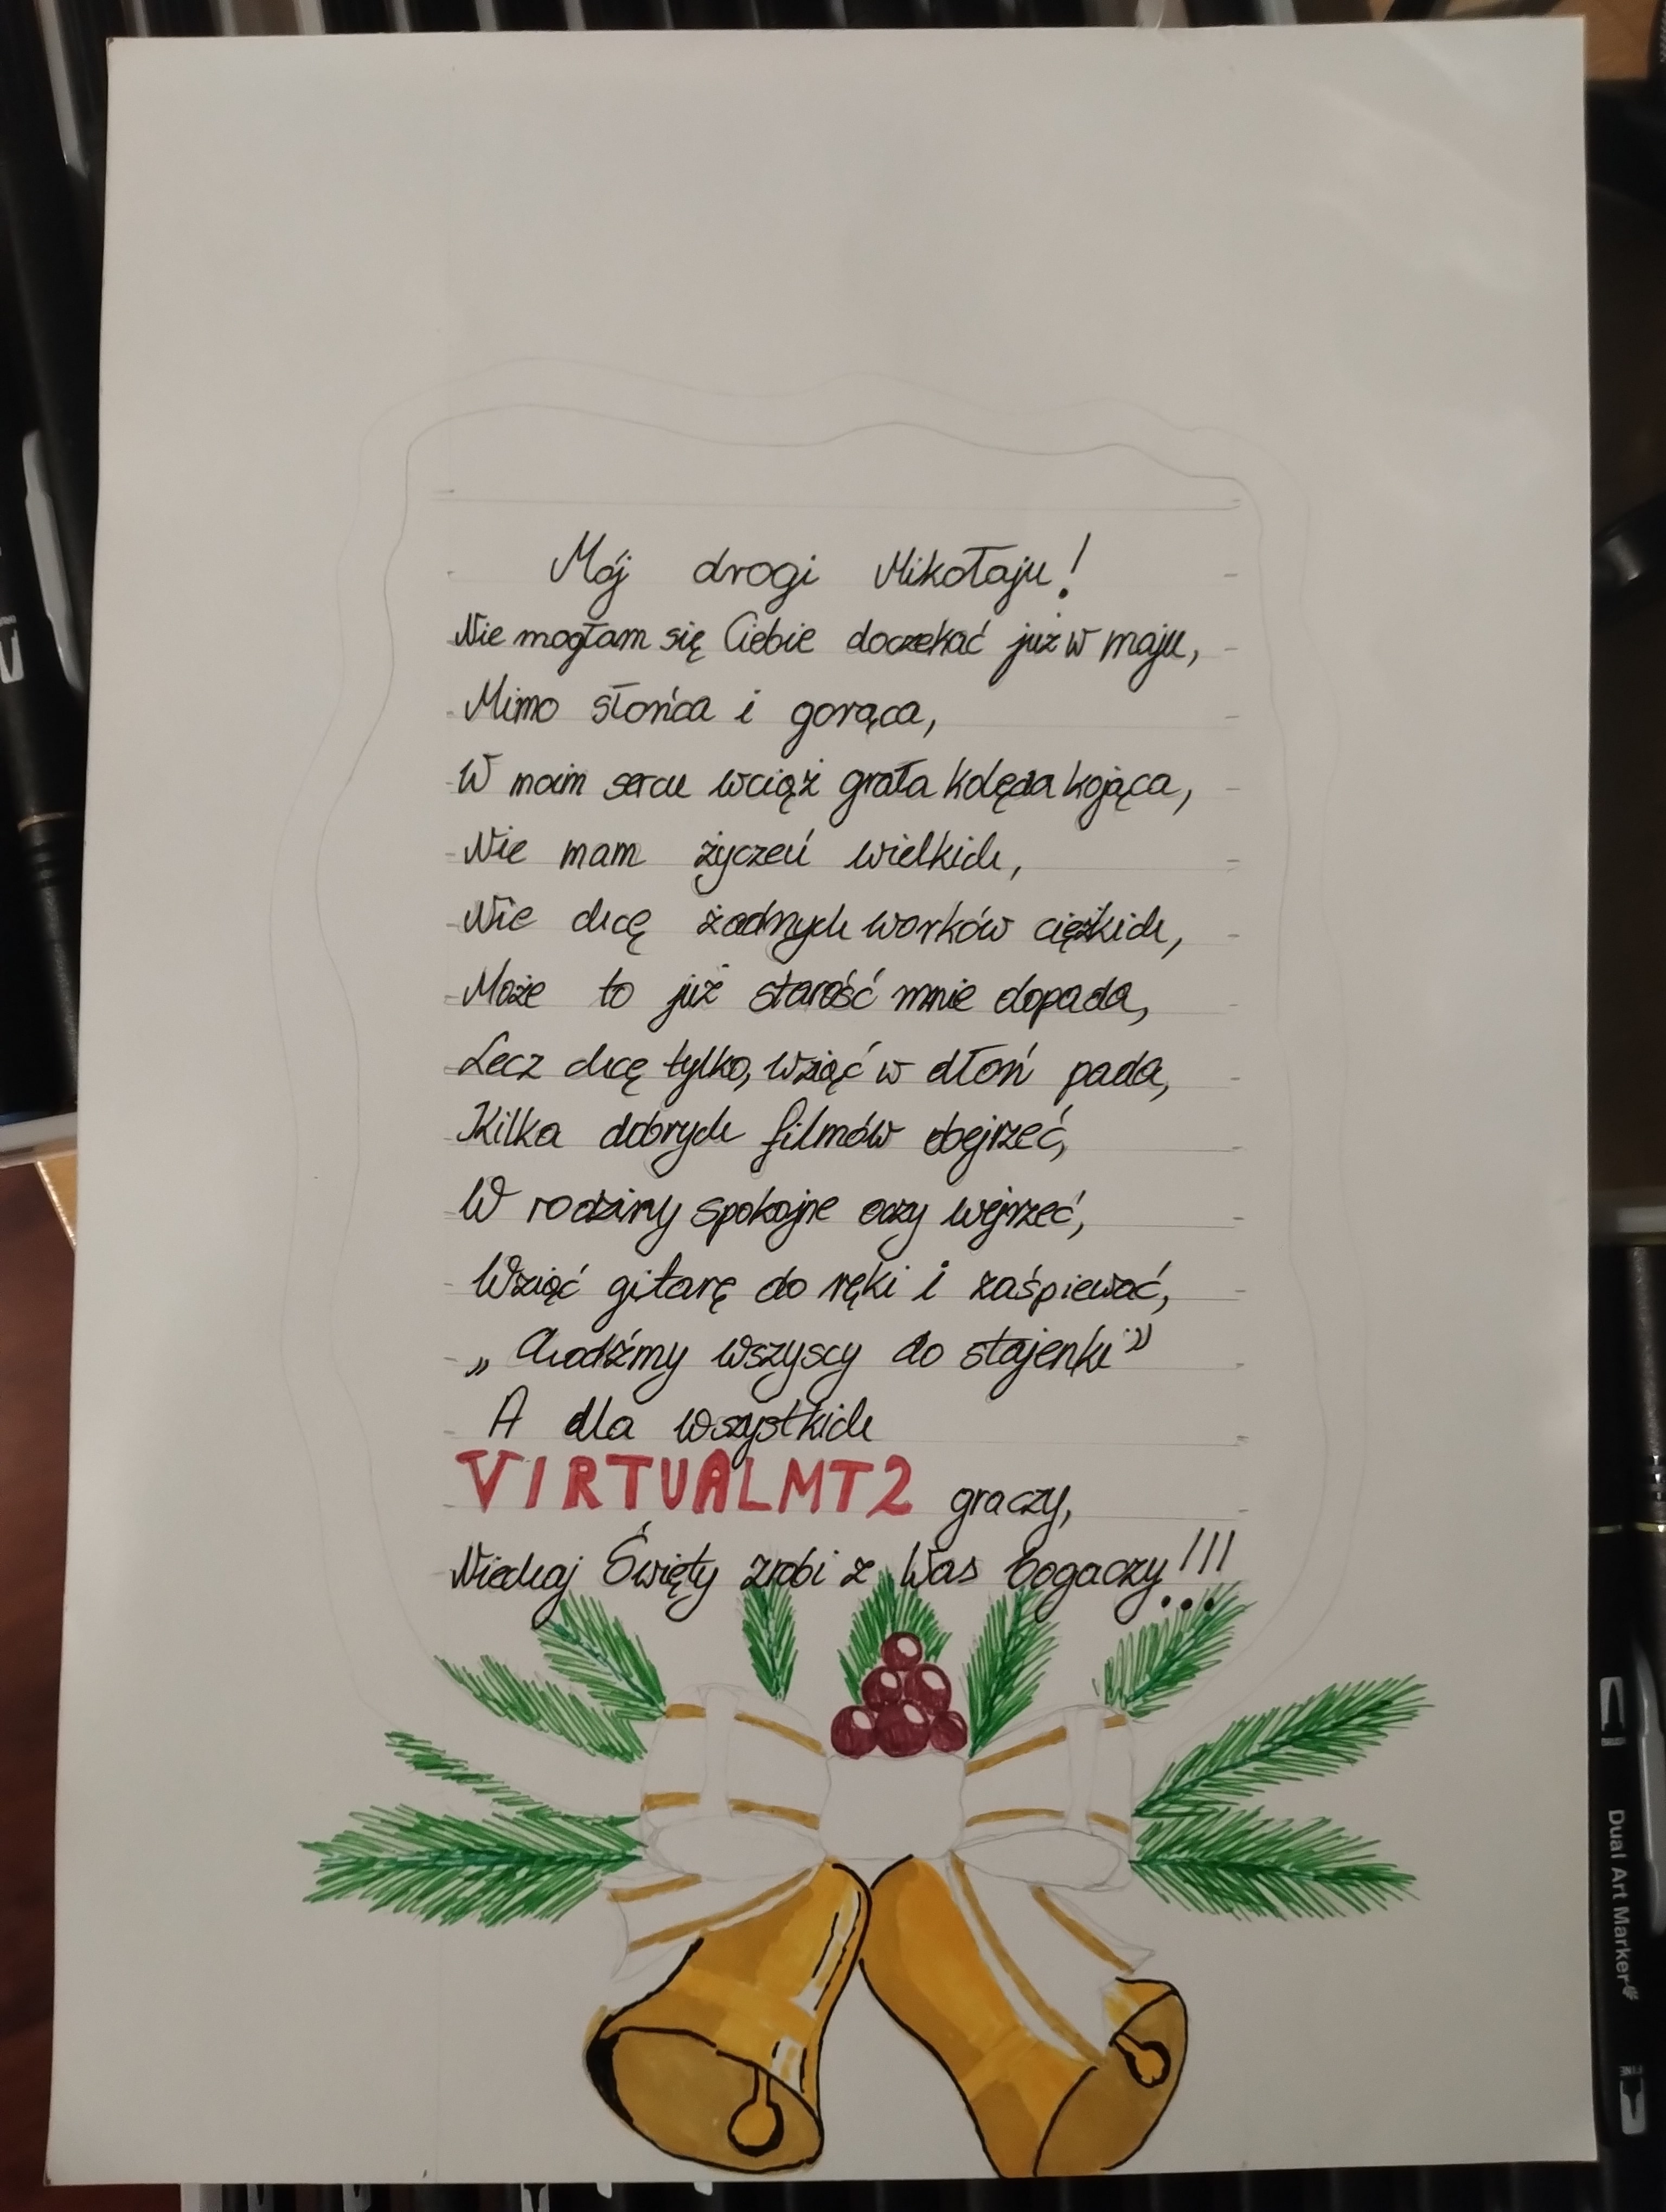 Mój drogi Mikołaju!
Nie mogłam się Ciebie doczekać już w maju,
Mimo słońca i gorąca,
W moim sercu wciąż grała kolęda kojąca,
Nie mam życzeń wielkich,
Nie chcę żadnych worków ciężkich,
Może to już starość mnie dopada,
Lecz chcę tylko, wziąć w dłoń pada,
Kilka dobrych filmów obejrzeć,
W rodziny spokojne oczy wejrzeć,
Wziąć gitarę do ręki i zaśpiewać,
„Chodźmy wszyscy do stajenki”
A dla wszystkich
VIRTUALMT2 graczy,
Niechaj Święty zrobi z Was bogaczy!!!
Dual Art Marker